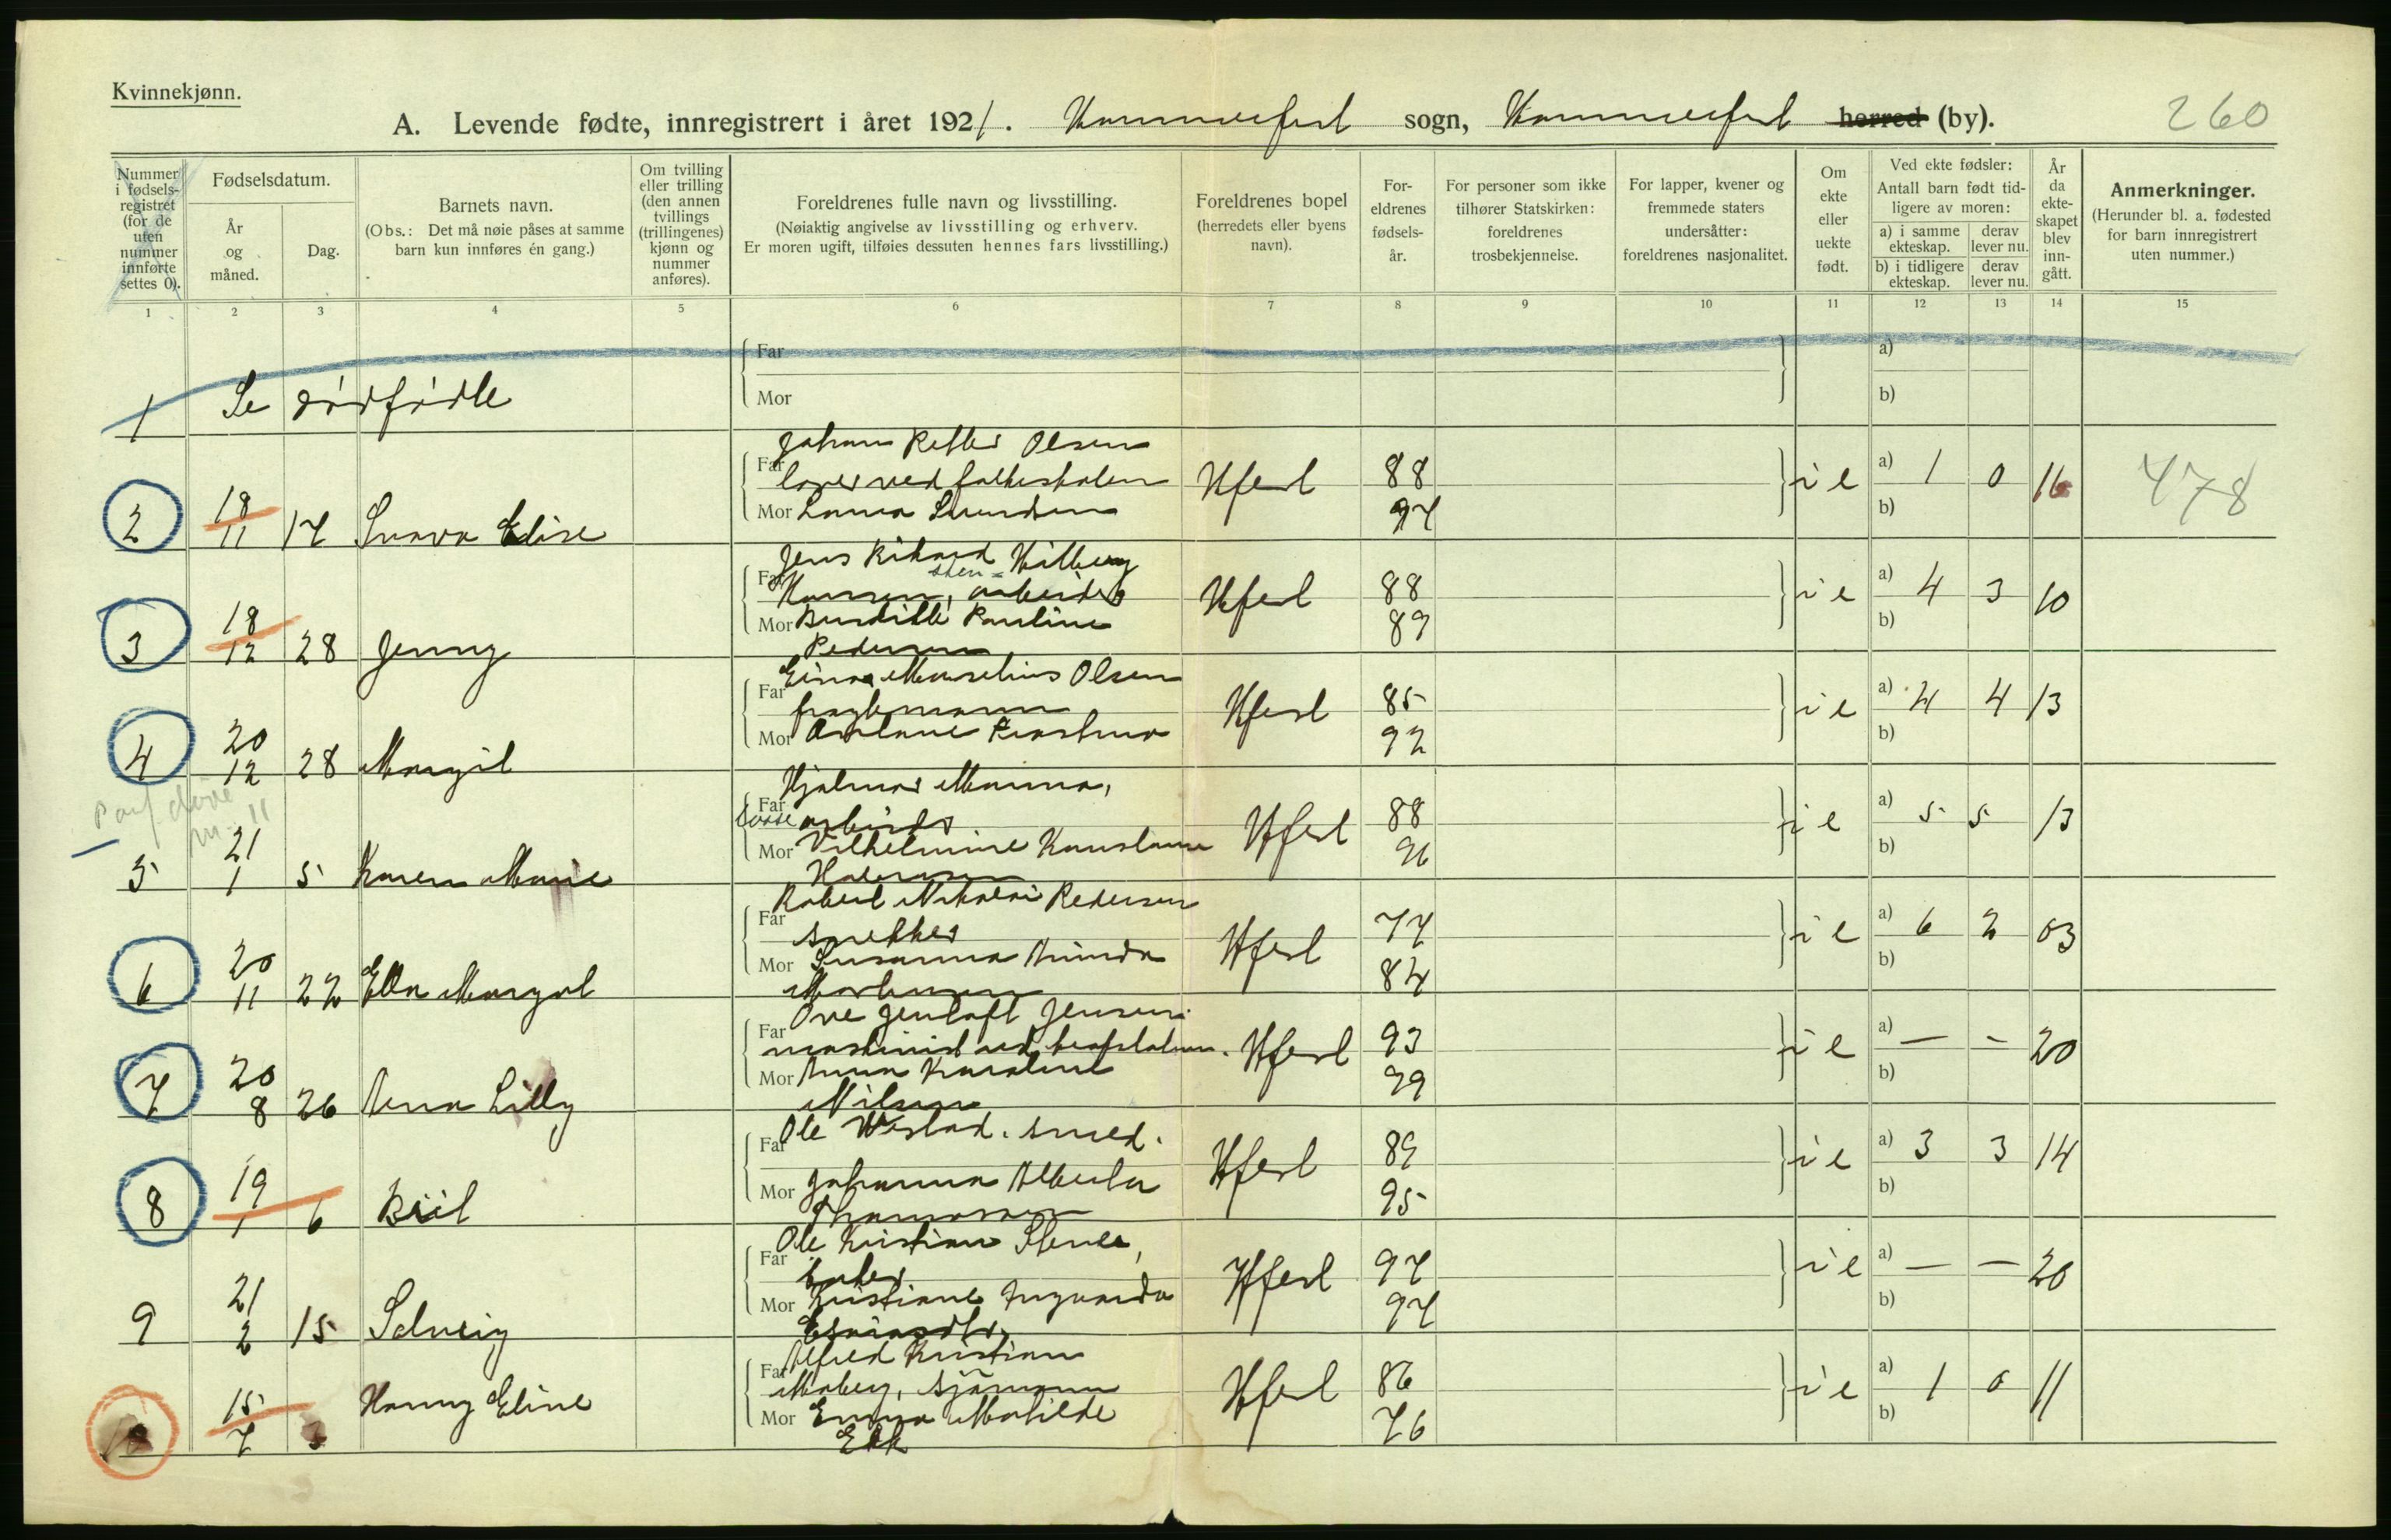 Kvinnekjønn.
A. Levende fødte, innregistrert i året 1921. Hammerfest sogn, Hammerfest herred (by). 260
Nummer i fødsels-registret (for de uten nummer innførte settes 0).
Fødselsdatum.
År og måned.
Dag.
Barnets navn.
(Obs.: Det må nøie påses at samme barn kun innføres én gang.)
Om tvilling eller trilling (den annen tvillings (trillingenes) kjønn og nummer anføres).
Foreldrenes fulle navn og livsstilling.
(Nøiaktig angivelse av livsstilling og erhverv.
Er moren ugift, tilføies dessuten hennes fars livsstilling.)
Foreldrenes bopel (herredets eller byens navn).
For-eldrenes fødsels-år.
For personer som ikke tilhører Statskirken: foreldrenes trosbekjennelse.
For lapper, kvener og fremmede staters undersåtter: foreldrenes nasjonalitet.
Om ekte eller uekte født.
Ved ekte fødsler:
Antall barn født tid-ligere av moren:
a) i samme ekteskap.
derav lever nu.
b) i tidligere ekteskap.
derav lever nu.
År da ekte-skapet blev inn-gått.
Anmerkninger.
(Herunder bl. a. fødested for barn innregistrert uten nummer.)
1 2 3 4 5 6 7 8 9 10 11 12 13 14 15
1 Se dødfødte
Far
Mor
a)
b)
Johan Petter Olsen
Far lærer ved folkeskolen Hfest 88 i e a) 1 0 16 478
Mor Laura 97 b)
2 18/11 17 Snava Elise
Jens Rikard Hilberg
Far Hansen, arbeider Hfest 88 i e a) 4 3 10
Mor Pauline 89 b)
Pedersen
3 18/12 28 Jenny
Einar Marselius Olsen
Far fragtemann Hfest 85 i e a) 4 4 13
Mor 92 b)
4 20/12 28 Margit
Hjalmar
Far arbeider Hfest 88 i e a) 5 5 13
Mor Vilhelmine 96 b)
5 21/1 5 Karen Marie
Robert Nikolai Pedersen
Far snekker Hfest 77 i e a) 6 2 03
Mor Susanna 84 b)
Mortensen
6 20/11 22 Ella Margot
Ove Gentoft Jensen
Far maskinist ved Hfest 93 i e a) — — 20
Mor Anna Karoline 99 b)
Nilsen
7 20/8 26 Anna Lilly
Ole smed.
Far Hfest 89 i e a) 3 3 14
Mor Johanna Alberta 95 b)
Thomassen
8 19/1 6 Beiil
Ole Kristian
Far Hfest 97 i e a) — — 20
Mor Kristiane 97 b)
9 21/2 15 Solveig
Alfred Kristian
Far Moberg, sjømann Hfest 86 i e a) 1 0 11
Mor Emma Matilde 76 b)
Ekk
10 15/7 3 Hanny Eline